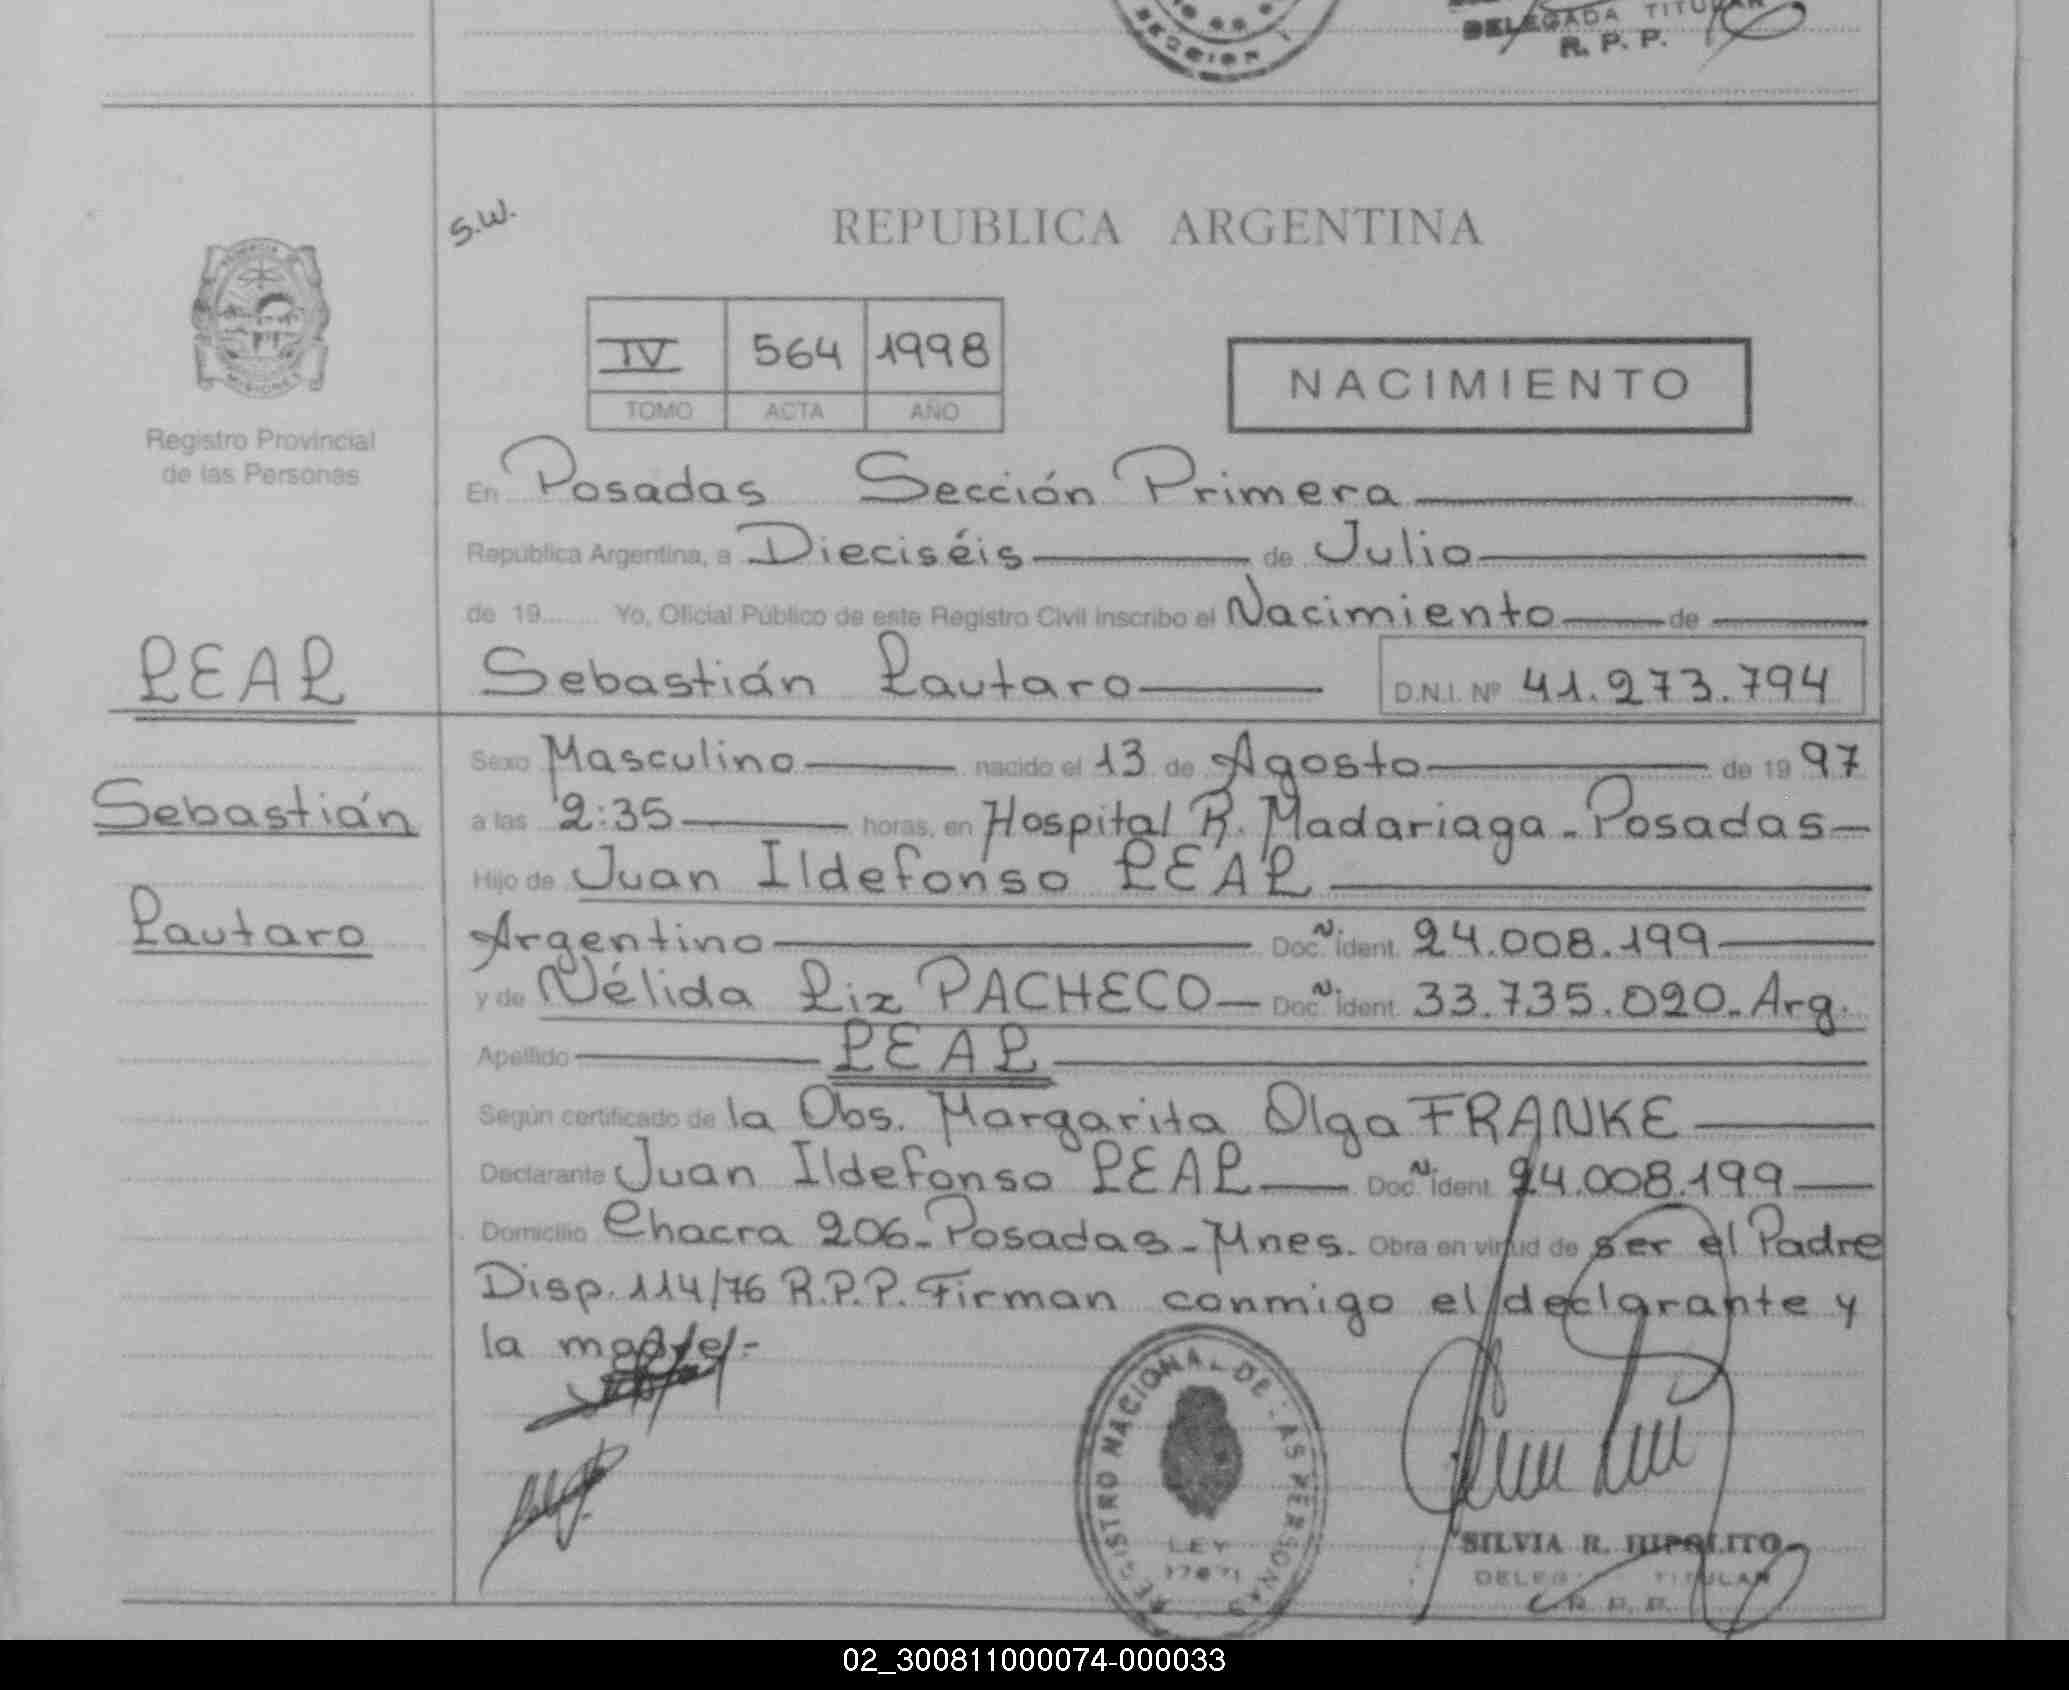 SECCION 1
DELEGADA TITULAR
R. P. P.
S.W.
REPUBLICA ARGENTINA
MISIONES
IV 564 1998
TOMO ACTA AÑO
NACIMIENTO
Registro Provincial
de las Personas
En Posadas Sección Primera
República Argentina, a Dieciséis de Julio
de 19....... Yo, Oficial Público de este Registro Civil inscribo el Nacimiento de
LEAL
Sebastián Lautaro D.N.I. Nº 41.273.794
Sexo Masculino nacido el 13 de Agosto de 1997
Sebastián
a las 2:35 horas, en Hospital R. Madariaga - Posadas
Hijo de Juan Ildefonso LEAL
Lautaro
Argentino Doc. Ident. 24.008.199
y de Nélida Liz PACHECO Doc. Ident. 33.735.020. Arg.
Apellido LEAL
Según certificado de la Obs. Margarita Olga FRANKE
Declarante Juan Ildefonso LEAL Doc. Ident. 24.008.199
Domicilio Chacra 206 - Posadas - Mnes. Obra en virtud de ser el Padre
Disp. 114/76 R.P.P. Firman conmigo el declarante y
la madre.-
REGISTRO NACIONAL DE LAS PERSONAS
LEY
17671
SILVIA R. HIPOLITO
DELEGADA TITULAR
R. P. P.
02_300811000074-000033